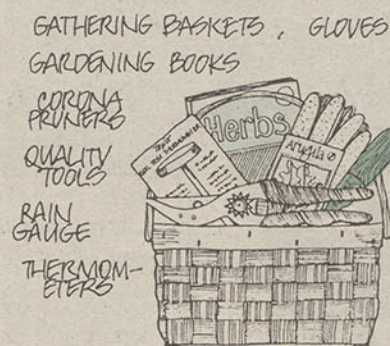 GATHERING BASKETS, GLOVES
GARDENING BOOKS
CORONA
PRUNERS
QUALITY
TOOLS
RAIN
GAUGE
THERMOM-
ETERS
Herbs
Arugula